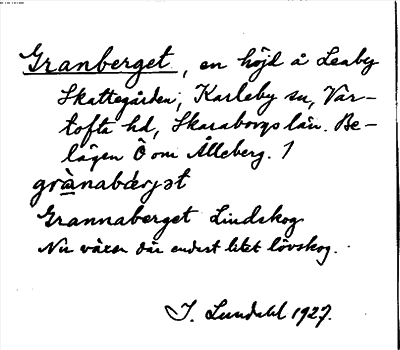 Granberget, en höjd å Leaby
Skattegården, Karleby sn, Var-
tofta hd, Skaraborgs län. Be-
lägen Ö om Ålleberg. 1
grànabærjət
Grannaberget Lindskog
Nu växer där endast litet lövskog.
J. Lundahl 1927.